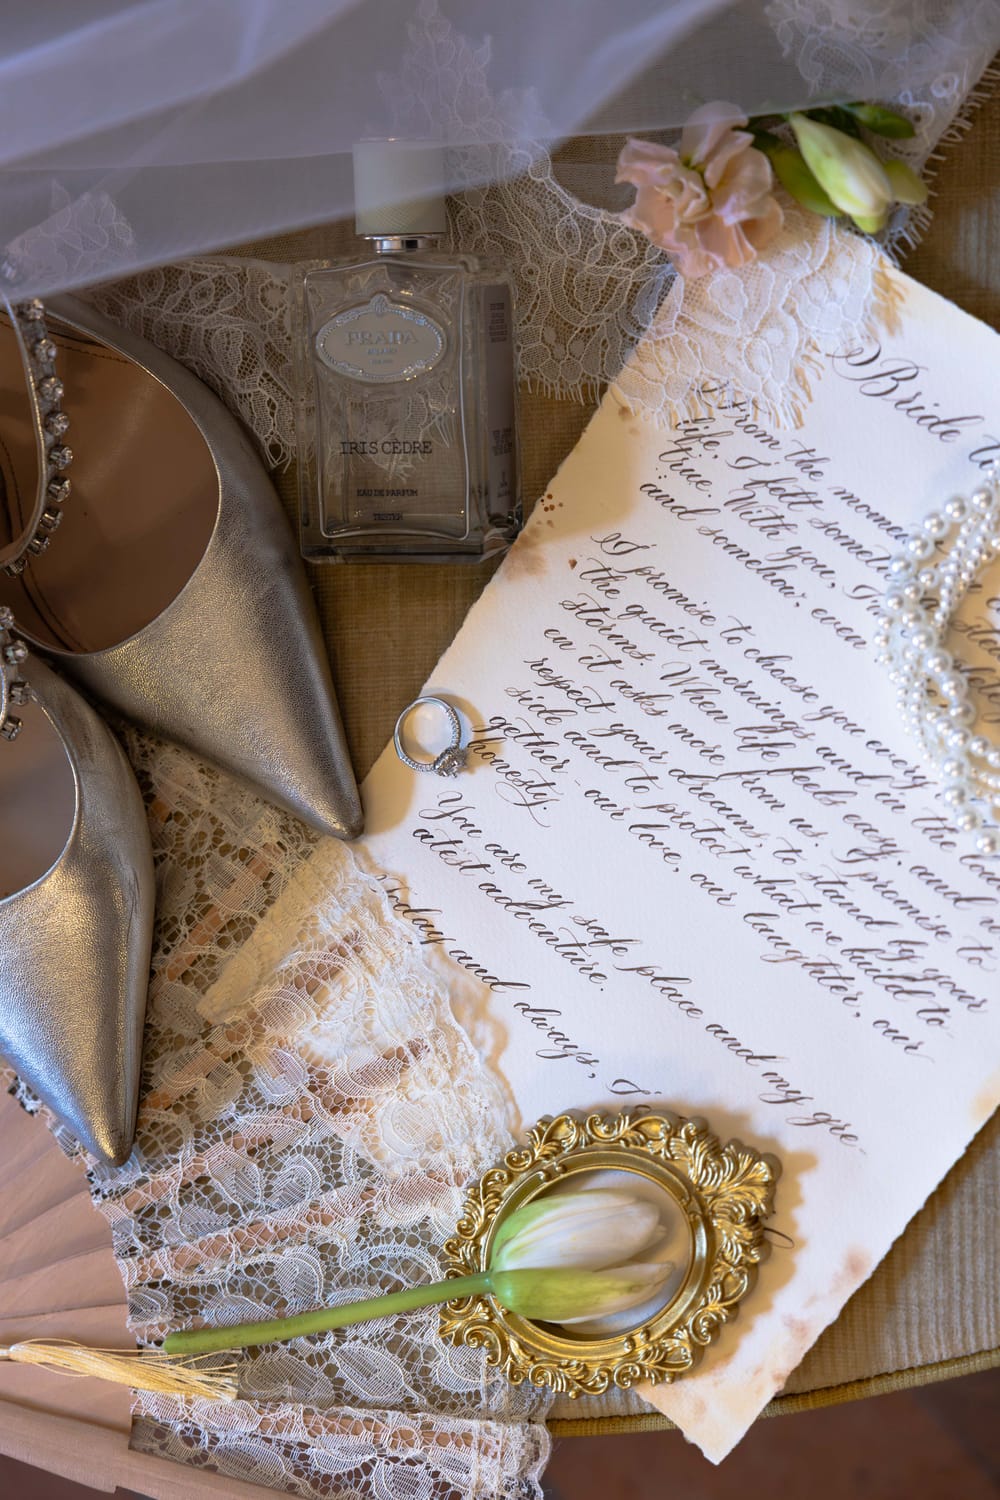 PRADA
MILANO
IRIS CÈDRE
EAU DE PARFUM
TESTER
Bride
From the
life, I felt
true. With you,
and somehow, even
I promise to choose you every
the quiet mornings and in the
storms. When life feels easy, and
en it asks more from us. I promise to
respect your dreams, to stand by your
side and to protect what we build to
gether - our love, our laughter, our
honesty
You are my safe place and my gre
atest adventure.
Today and always, I